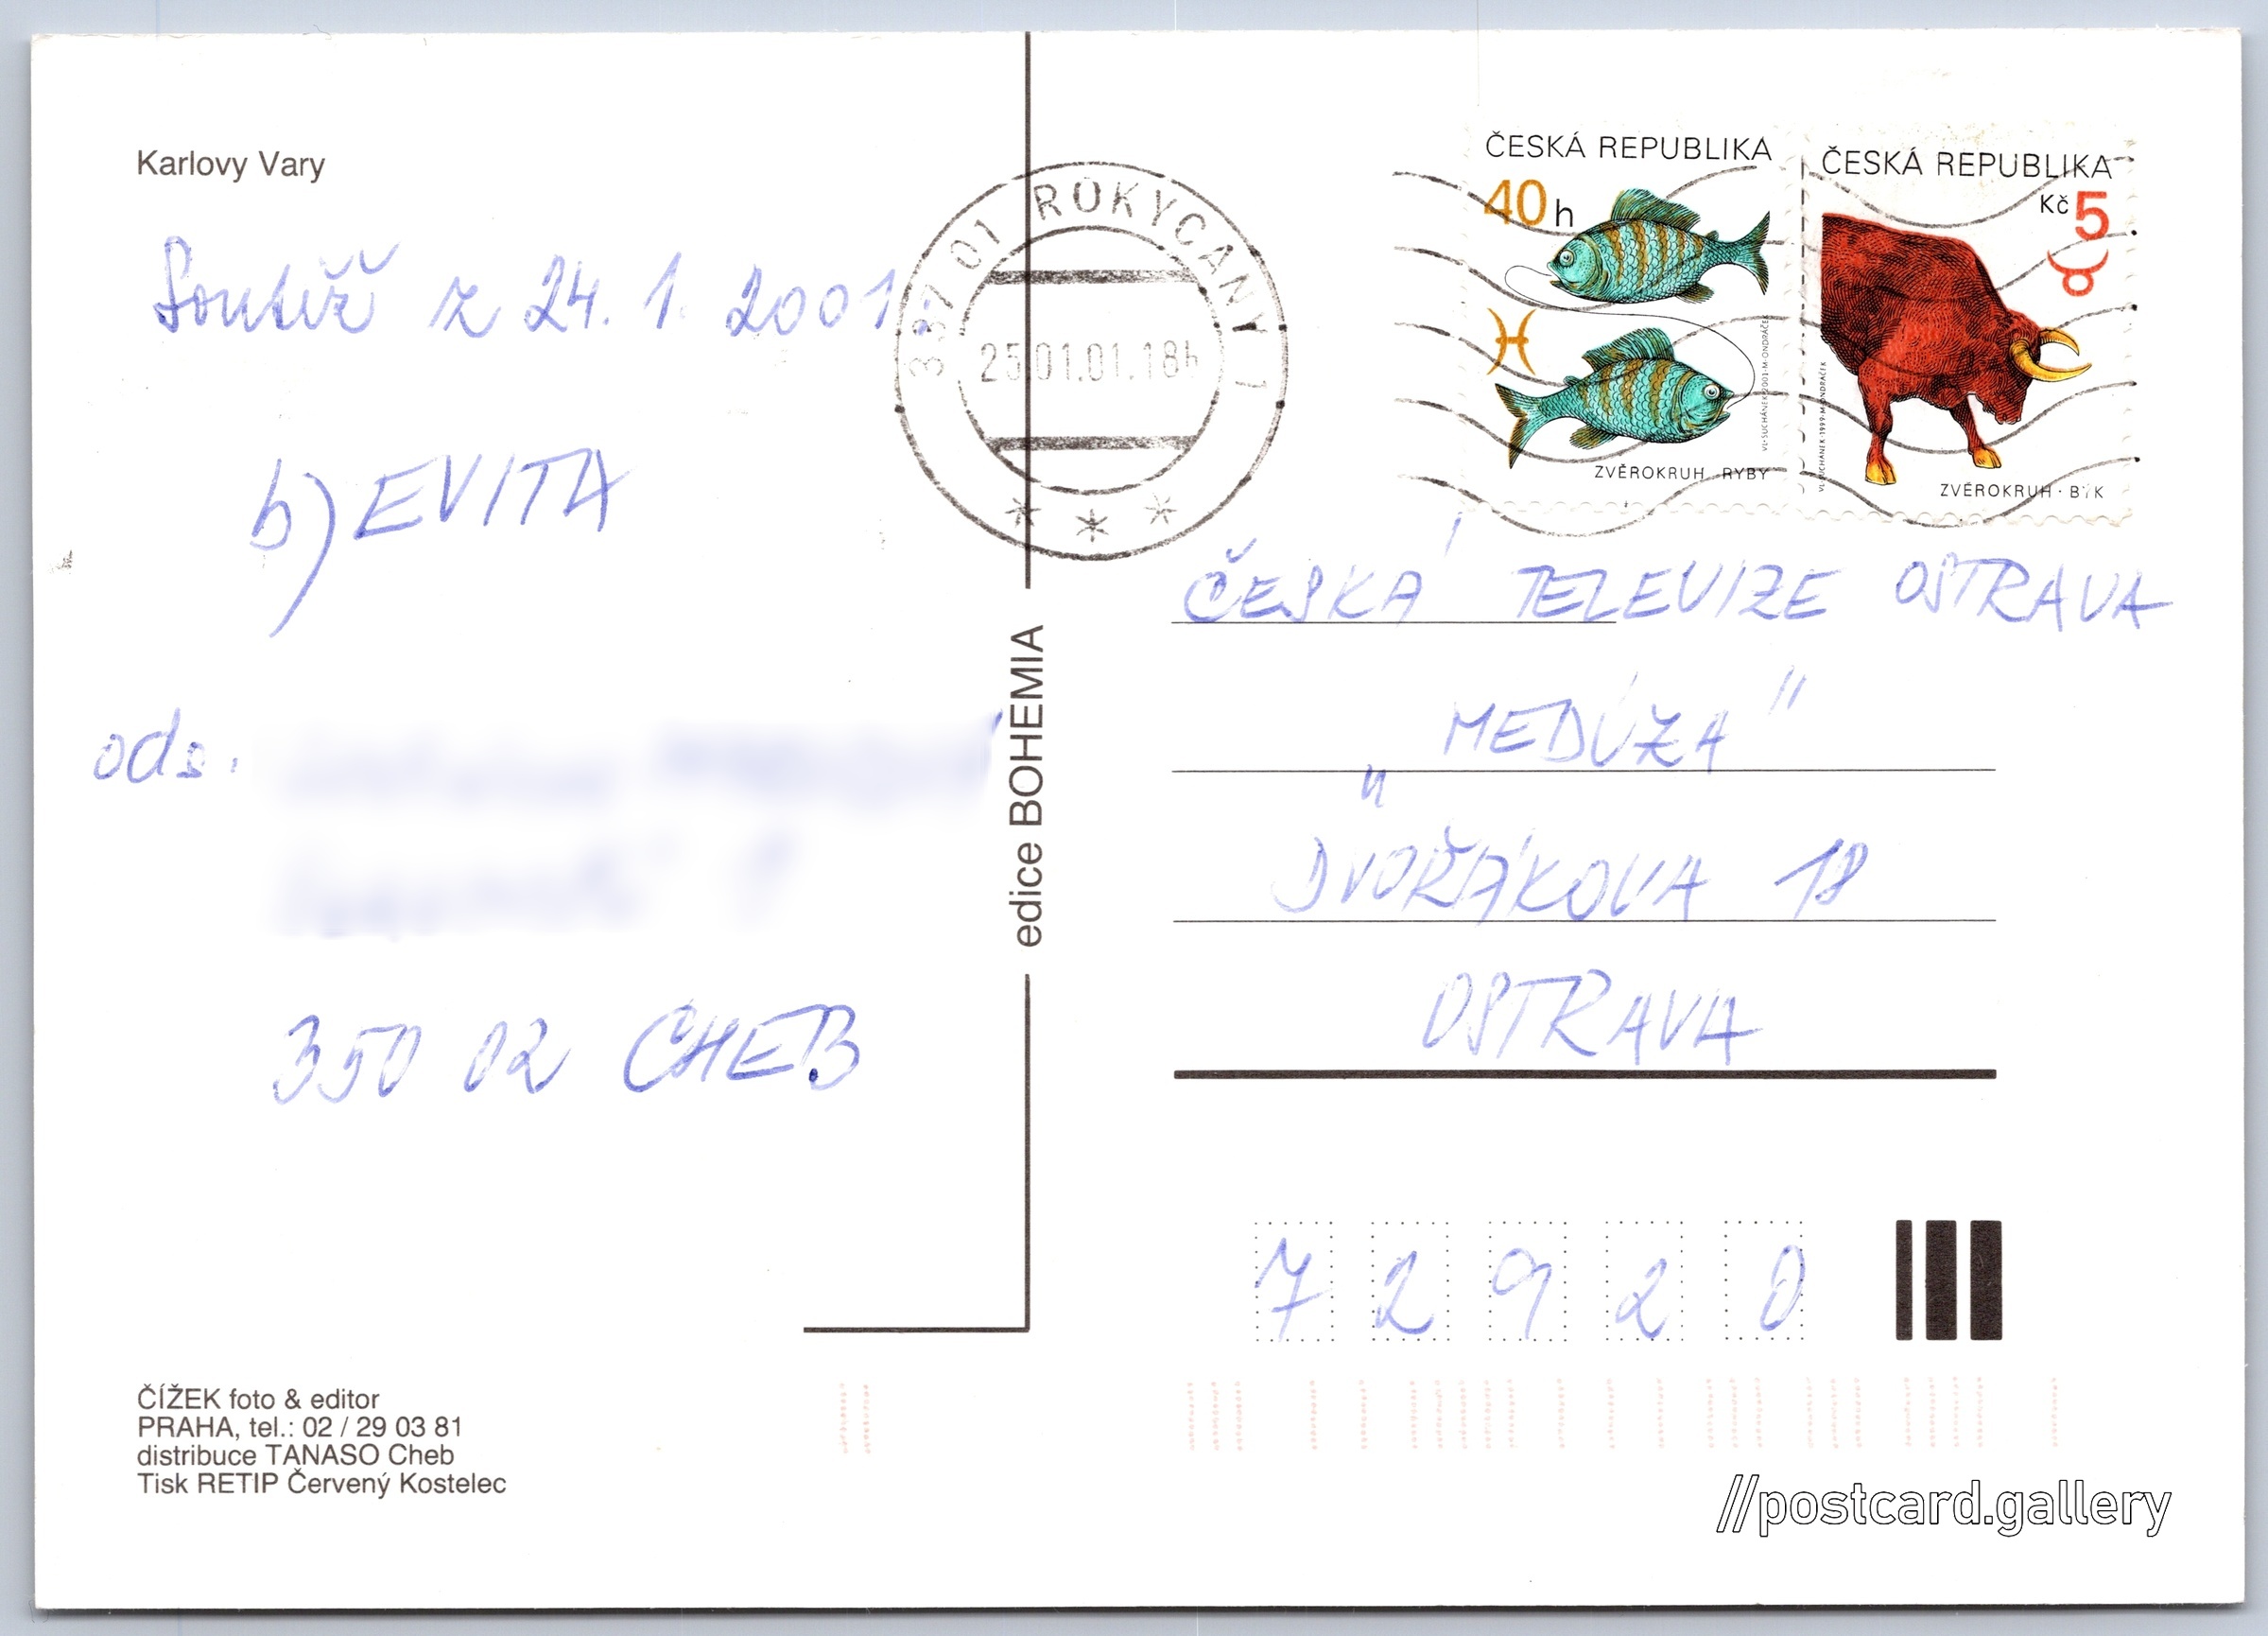 Karlovy Vary
Soutěž z 24. 1. 2001
b) EVITA
ods.
350 02 CHEB
ČÍŽEK foto & editor
PRAHA, tel.: 02 / 29 03 81
distribuce TANASO Cheb
Tisk RETIP Červený Kostelec
edice BOHEMIA
337 01 ROKYCANY 1
25.01.01.18h
ČESKÁ REPUBLIKA
40 h
ZVĚROKRUH · RYBY
ČESKÁ REPUBLIKA
Kč 5
ZVĚROKRUH · BÝK
ČESKÁ TELEVIZE OSTRAVA
„MEDÚZA"
DVOŘÁKOVA 18
OSTRAVA
72920
//postcard.gallery